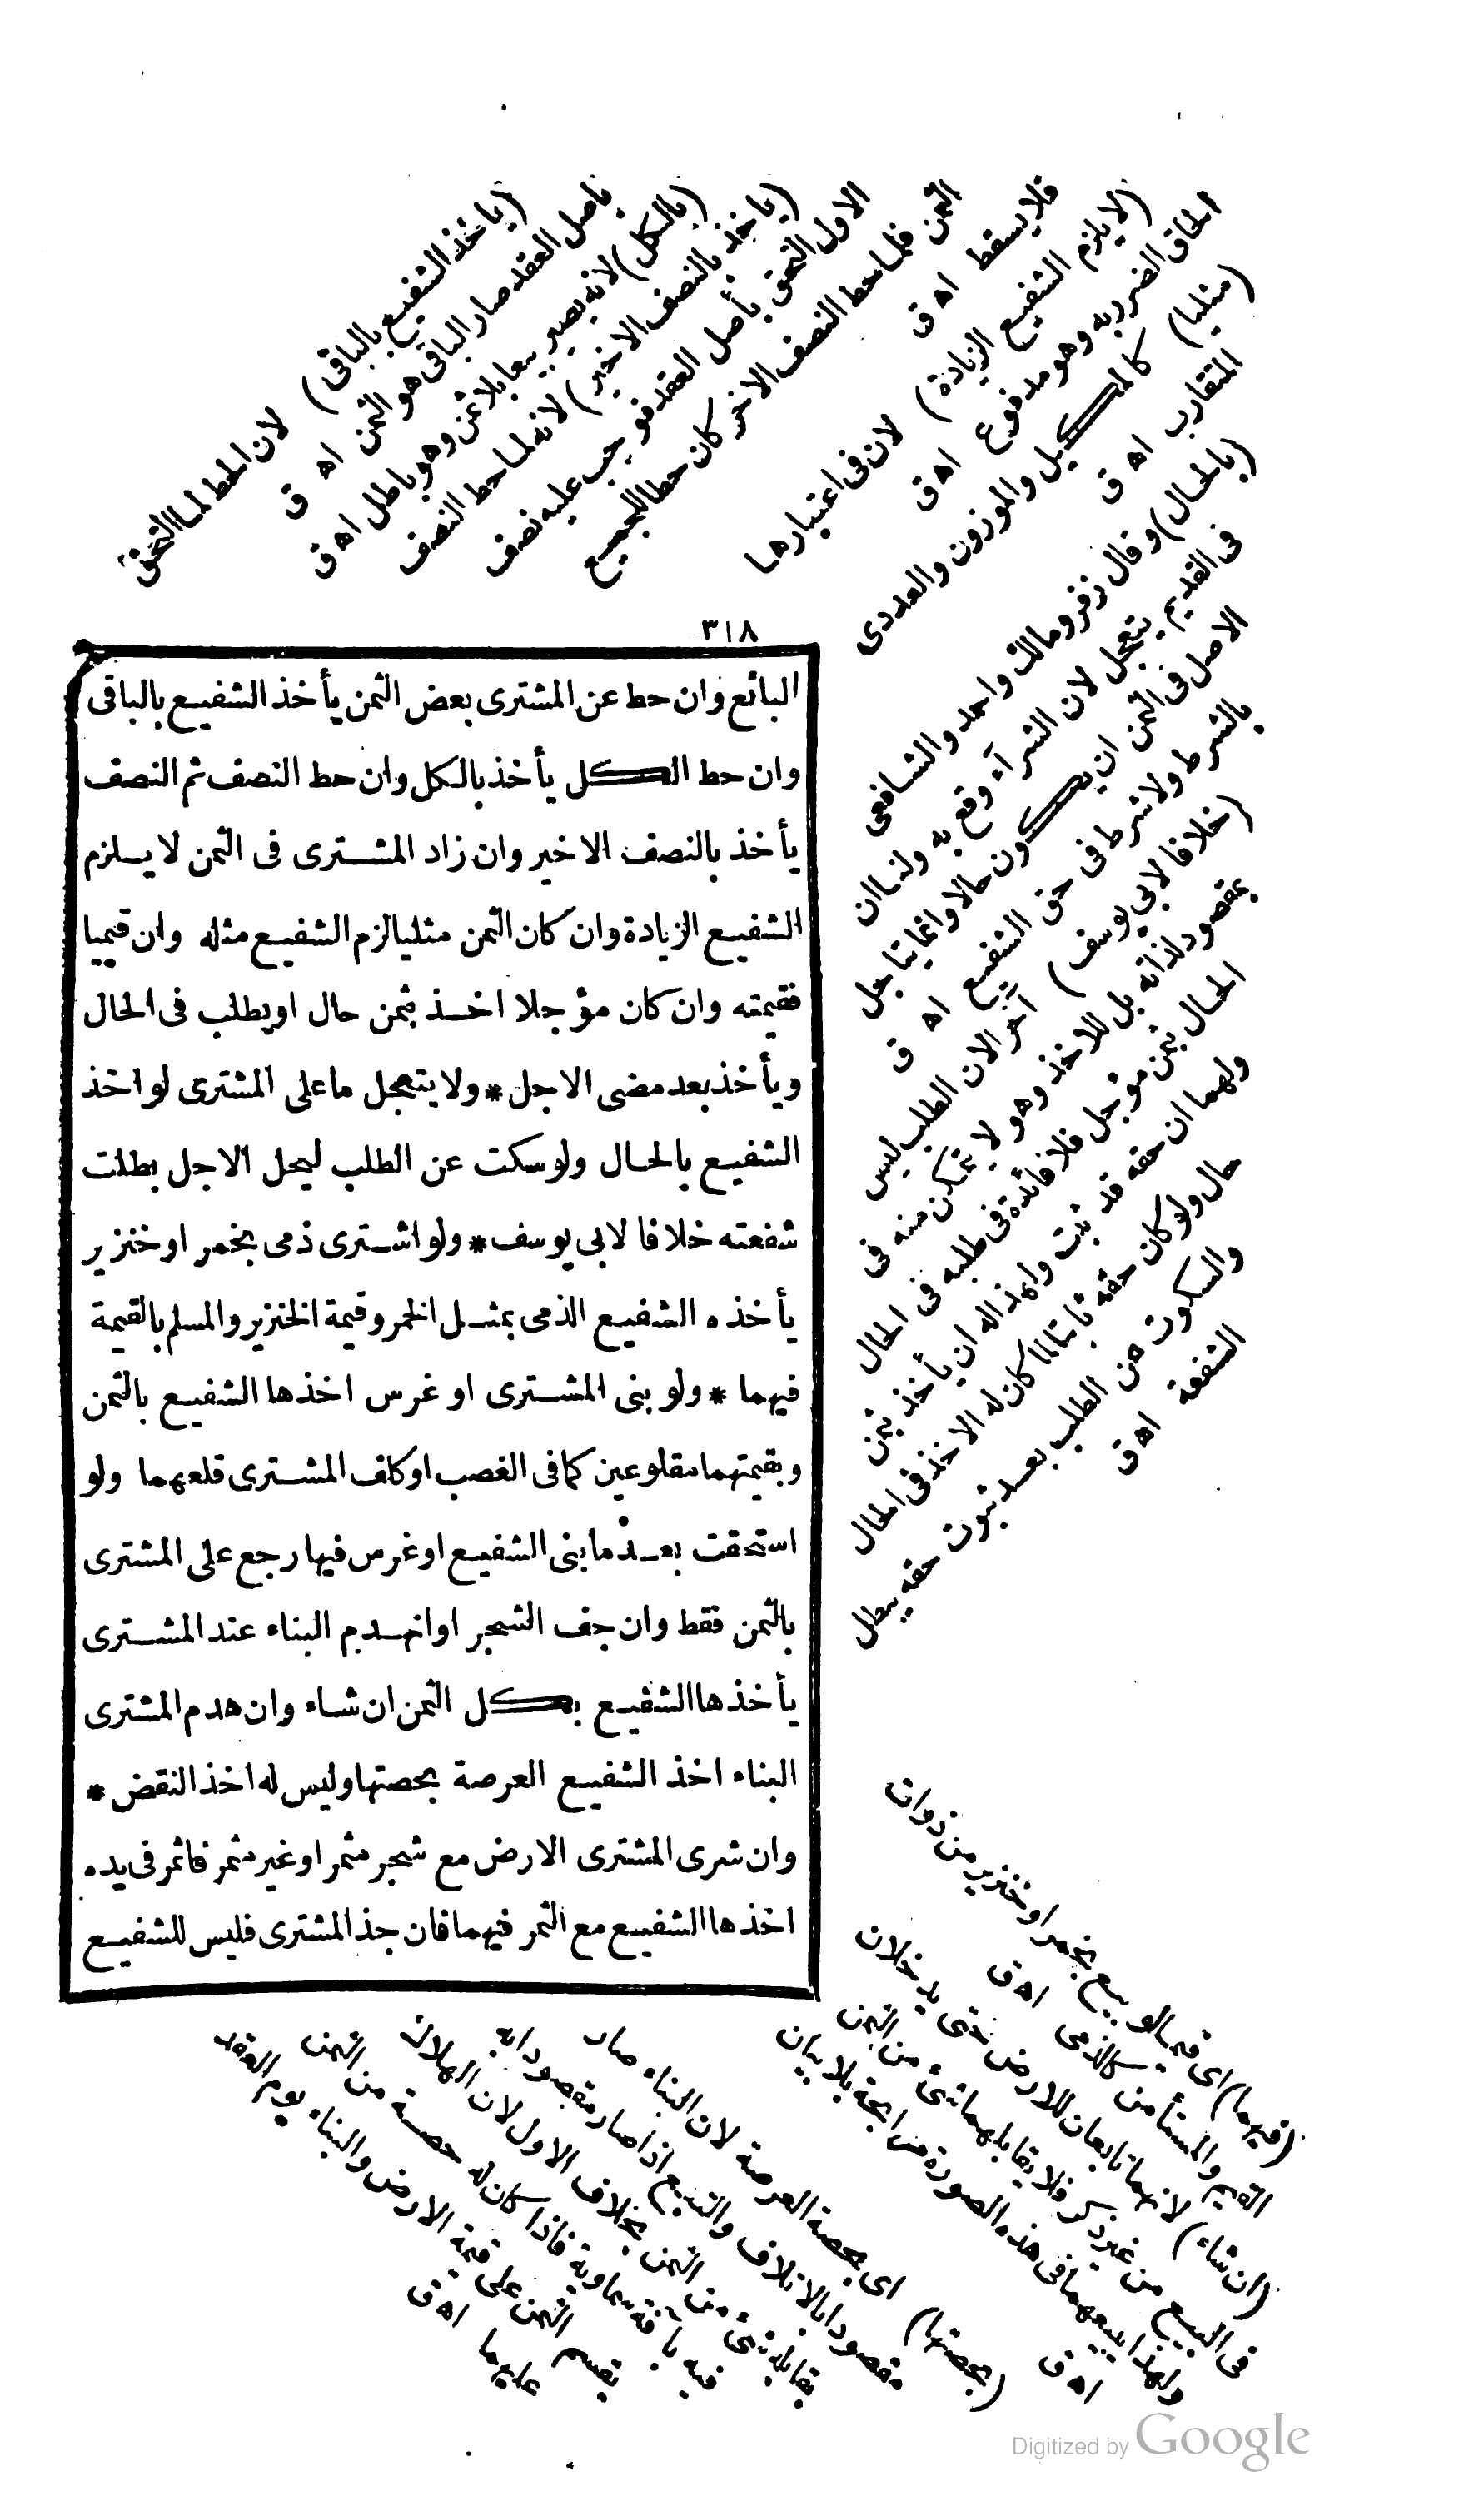 ٣١٨
البائع وان حط عن المشترى بعض الثمن يأخذ الشفيع بالباقى
وان حط الكل يأخذ بالكل وان حط النصف ثم النصف
يأخذ بالنصف الاخير وان زاد المشترى فى الثمن لا يلزم
الشفيع الزيادة وان كان الثمن مثليا لزم الشفيع مثله وان قيميا
فقيمته وان كان مؤجلا اخذ بثمن حال او يطلب فى الحال
ويأخذ بعد مضى الاجل * ولا يتعجل ما على المشترى لو اخذ
الشفيع بالحال ولو سكت عن الطلب ليحل الاجل بطلت
شفعته خلافا لابى يوسف * ولو اشترى ذمى بخمر او خنزير
يأخذه الشفيع الذمى بمثل الخمر وقيمة الخنزير والمسلم بالقيمة
فيهما * ولو بنى المشترى او غرس اخذها الشفيع بالثمن
وبقيمتهما مقلوعين كما فى الغصب او كلف المشترى قلعهما ولو
استحقت بعد ما بنى الشفيع او غرس فيها رجع على المشترى
بالثمن فقط وان جف الشجر او انهدم البناء عند المشترى
يأخذها الشفيع بكل الثمن ان شاء وان هدم المشترى
البناء اخذ الشفيع العرصة بحصتها وليس له اخذ النقض *
وان شرى المشترى الارض مع شجر مثمر او غير مثمر فاثمر فى يده
اخذها الشفيع مع الثمر فيهما فان جذ المشترى فليس للشفيع
(يأخذ الشفيع بالباقى) لان الحط لما التحق
بأصل العقد صار الباقى هو الثمن اه ق
(بالكل) لانه يصير بيعا بلا ثمن وهو باطل اه ق
(يأخذ بالنصف الاخير) لانه لما حط النصف
الاول التحق بأصل العقد فوجب عليه نصف
الثمن فلما حط النصف الاخر كان حطا للجميع
فلا يسقط اه ق
(لا يلزم الشفيع الزيادة) لان فى اعتبارها
الحاق الضرر به وهو مدفوع اه ق
(مثليا) كالمكيل والموزون والعددى
المتقارب اه ق
(بالحال) وقال زفر ومالك واحمد والشافعى
فى القديم يتعجل لان الشرآء وقع به ولنا ان
الاصل فى الثمن ان يكون حالا وانما يتأجل
بالشرط ولا شرط فى حق الشفيع اه ق
(خلافا لابى يوسف) آخر الان الطلب ليس
بمقصود لذاته بل للاخذ وهو لا يتمكن منه فى
الحال بثمن مؤجل فلا فائدة فى طلبه فى الحال
ولهما ان حقه قد ثبت ولهذا له ان يأخذ بثمن
حال ولولا كان حقه ثابتا لما كان له الاخذ فى الحال
والسكوت عن الطلب بعد ثبوت حقه يبطل
الشفعة اه ق
(فيهما) اى فيما لو بيع بخمر او خنزير من ذوات
القيم والمستأمن كالذمى اه ق
(ان شاء) لانهما تابعان للارض حتى يدخلان
فى البيع من غير ذكر فلا يقابلهما شئ من الثمن
ولهذا يبيعهما فى هذه الصورة مرابحة بلا بيان
اه ق
(بحصتها) اى بحصة العرصة لان البناء صار
مقصودا بالاتلاف والتبع اذا صار مقصودا به
يقابله شئ من الثمن بخلاف الاول لان الهلاك
فيه بآفة سماوية فاذا كان له حصة من الثمن
يقسم الثمن على قيمة الارض والبناء يوم العقد
عليهما اه ق
Digitized by Google